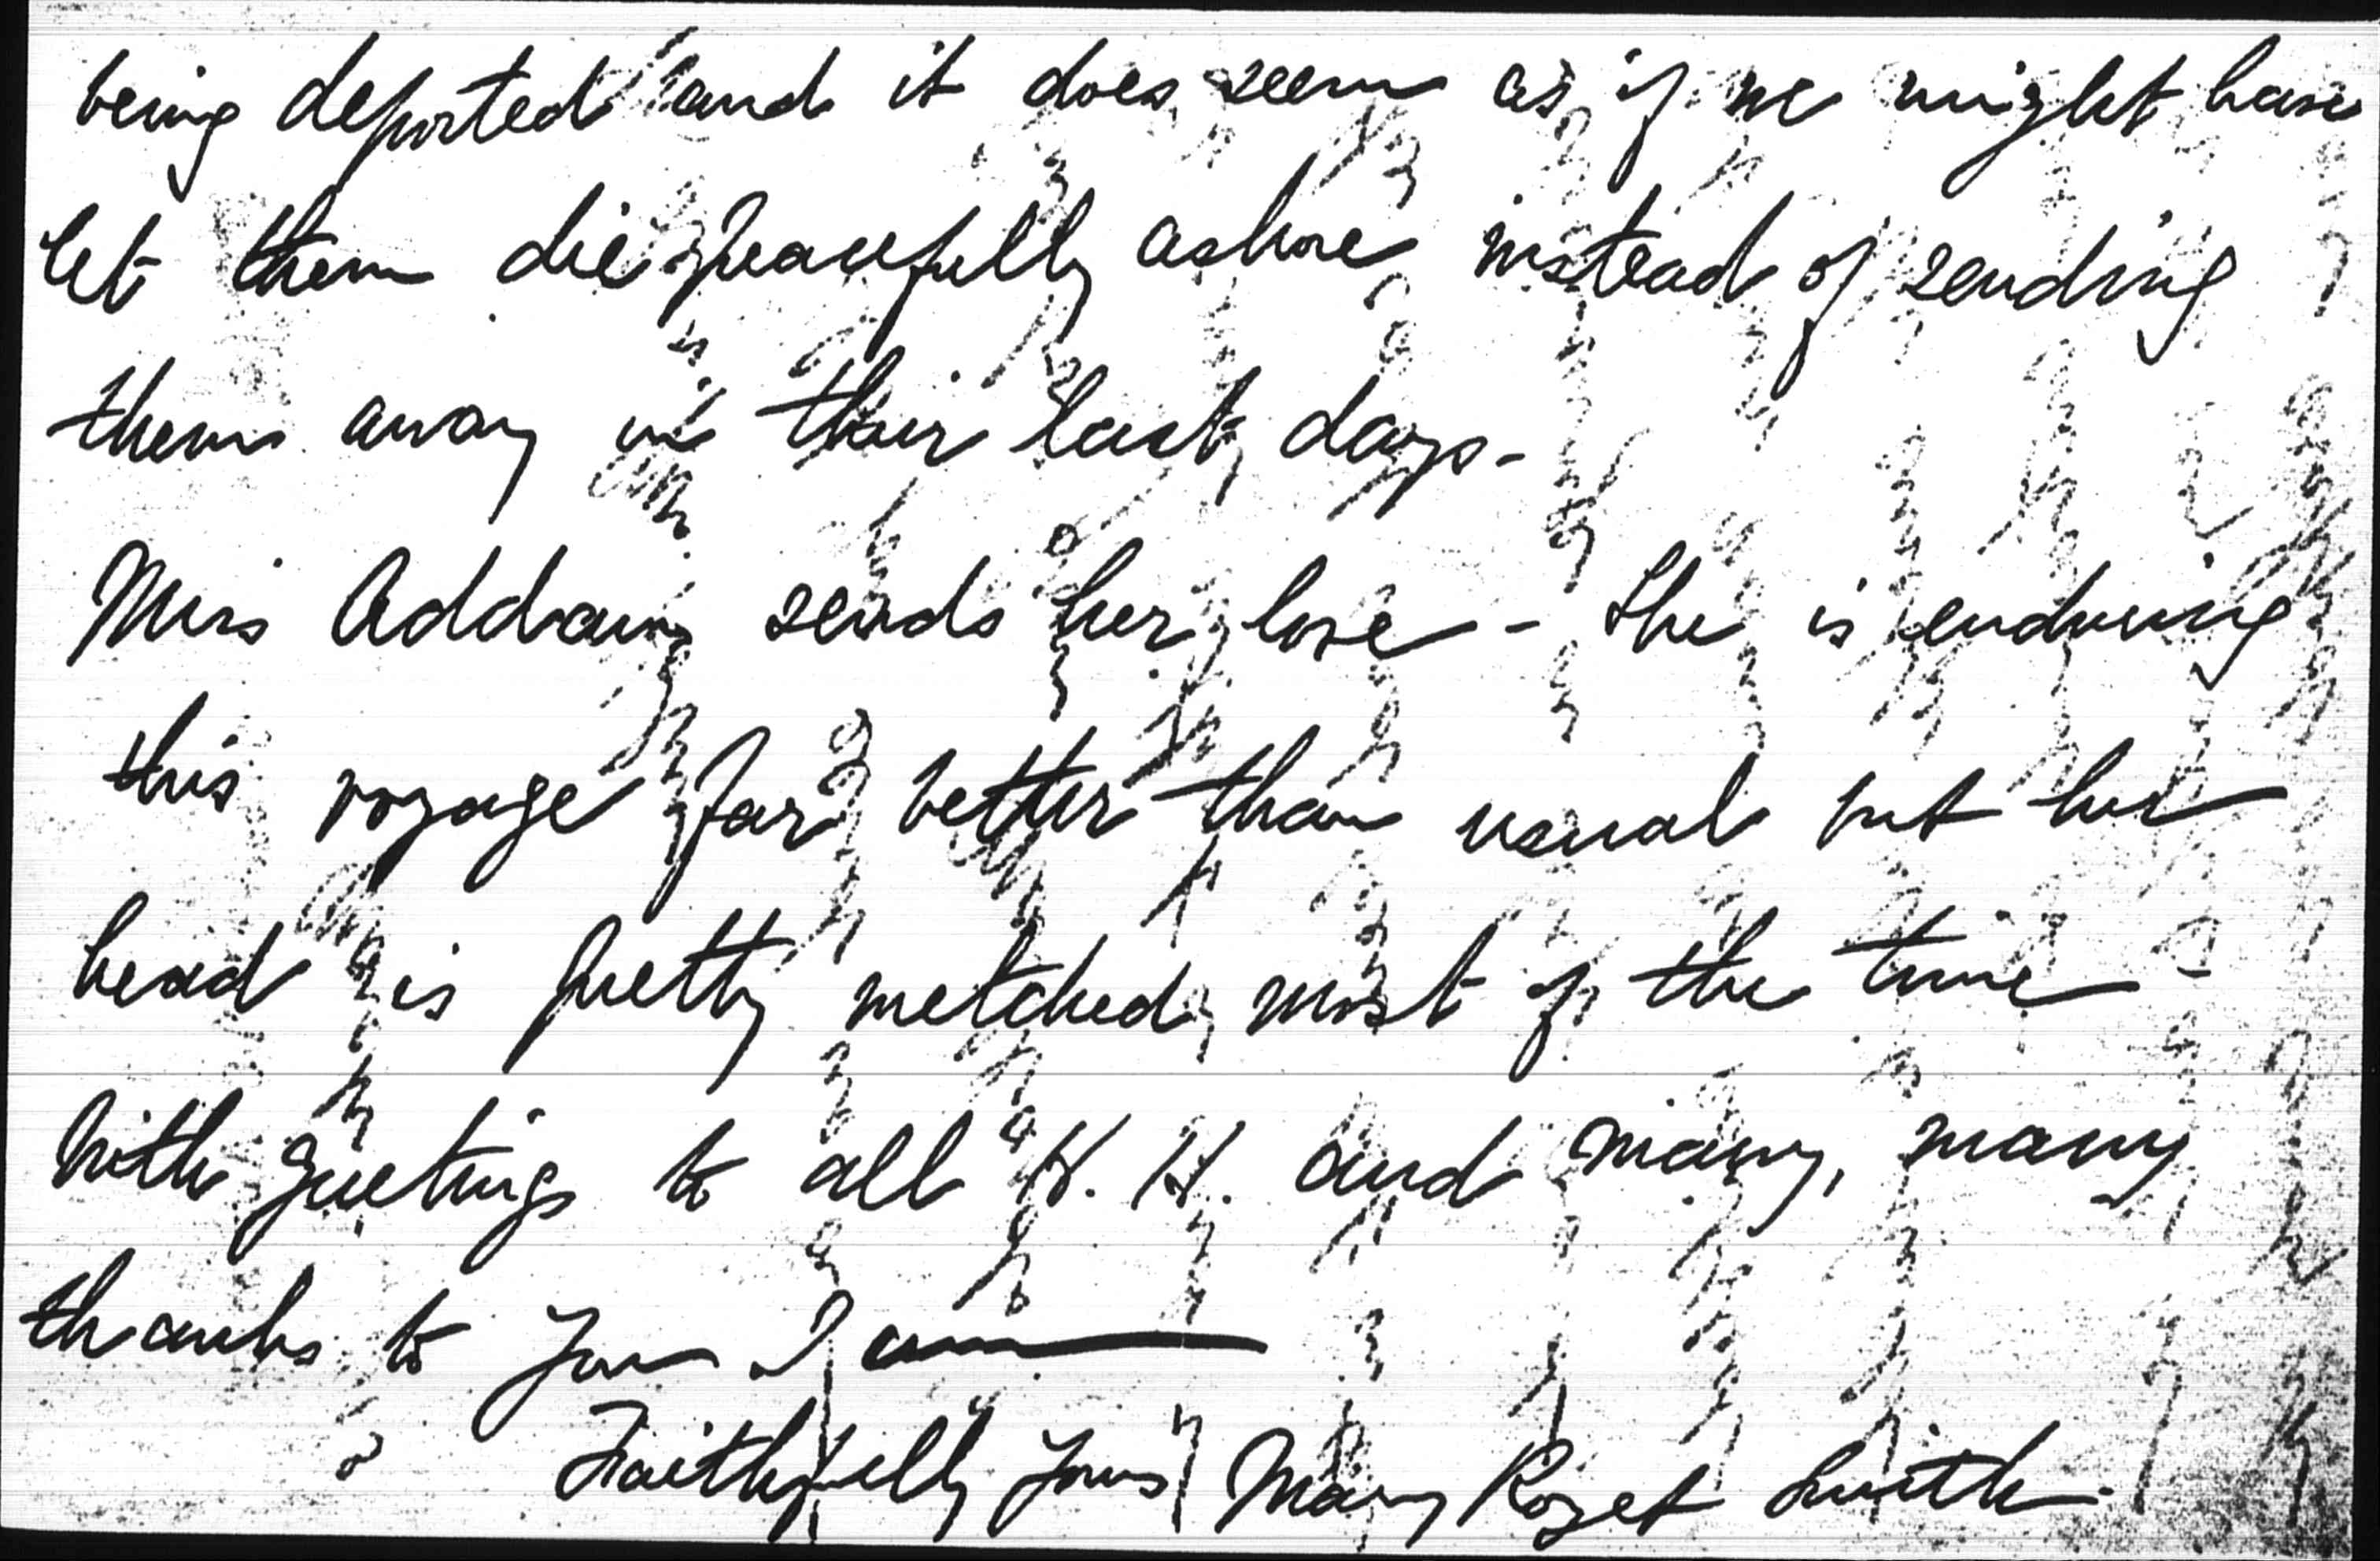 being deported and it does seem as if we might have
let them die peacefully ashore instead of sending
them away in their last days -
Miss Addams sends her love - She is enduring
this voyage far better than usual but her
head is pretty wretched most of the time
With greetings to all H. H. and many, many
thanks to you I am
Faithfully yours Mary Rozet Smith.